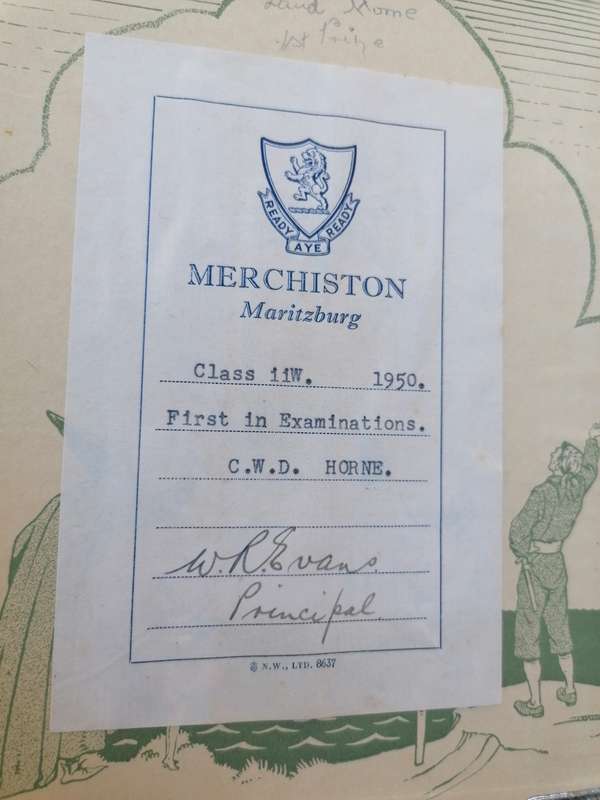 1st Prize
READY AYE READY
MERCHISTON
Maritzburg
Class iiW. 1950.
First in Examinations.
C.W.D. HORNE.
W.R.Evans.
Principal.
N.W., LTD. 8637